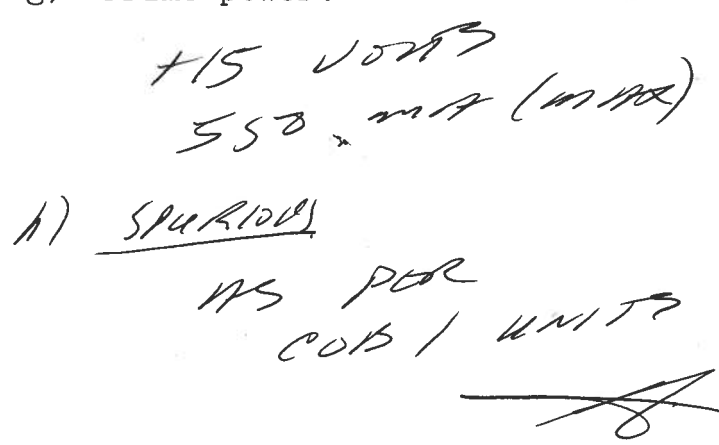 g) Prime power:
+15 VOLTS
550 mA (MAX)
h) SPURIOUS
AS PER
COB 1 UNITS